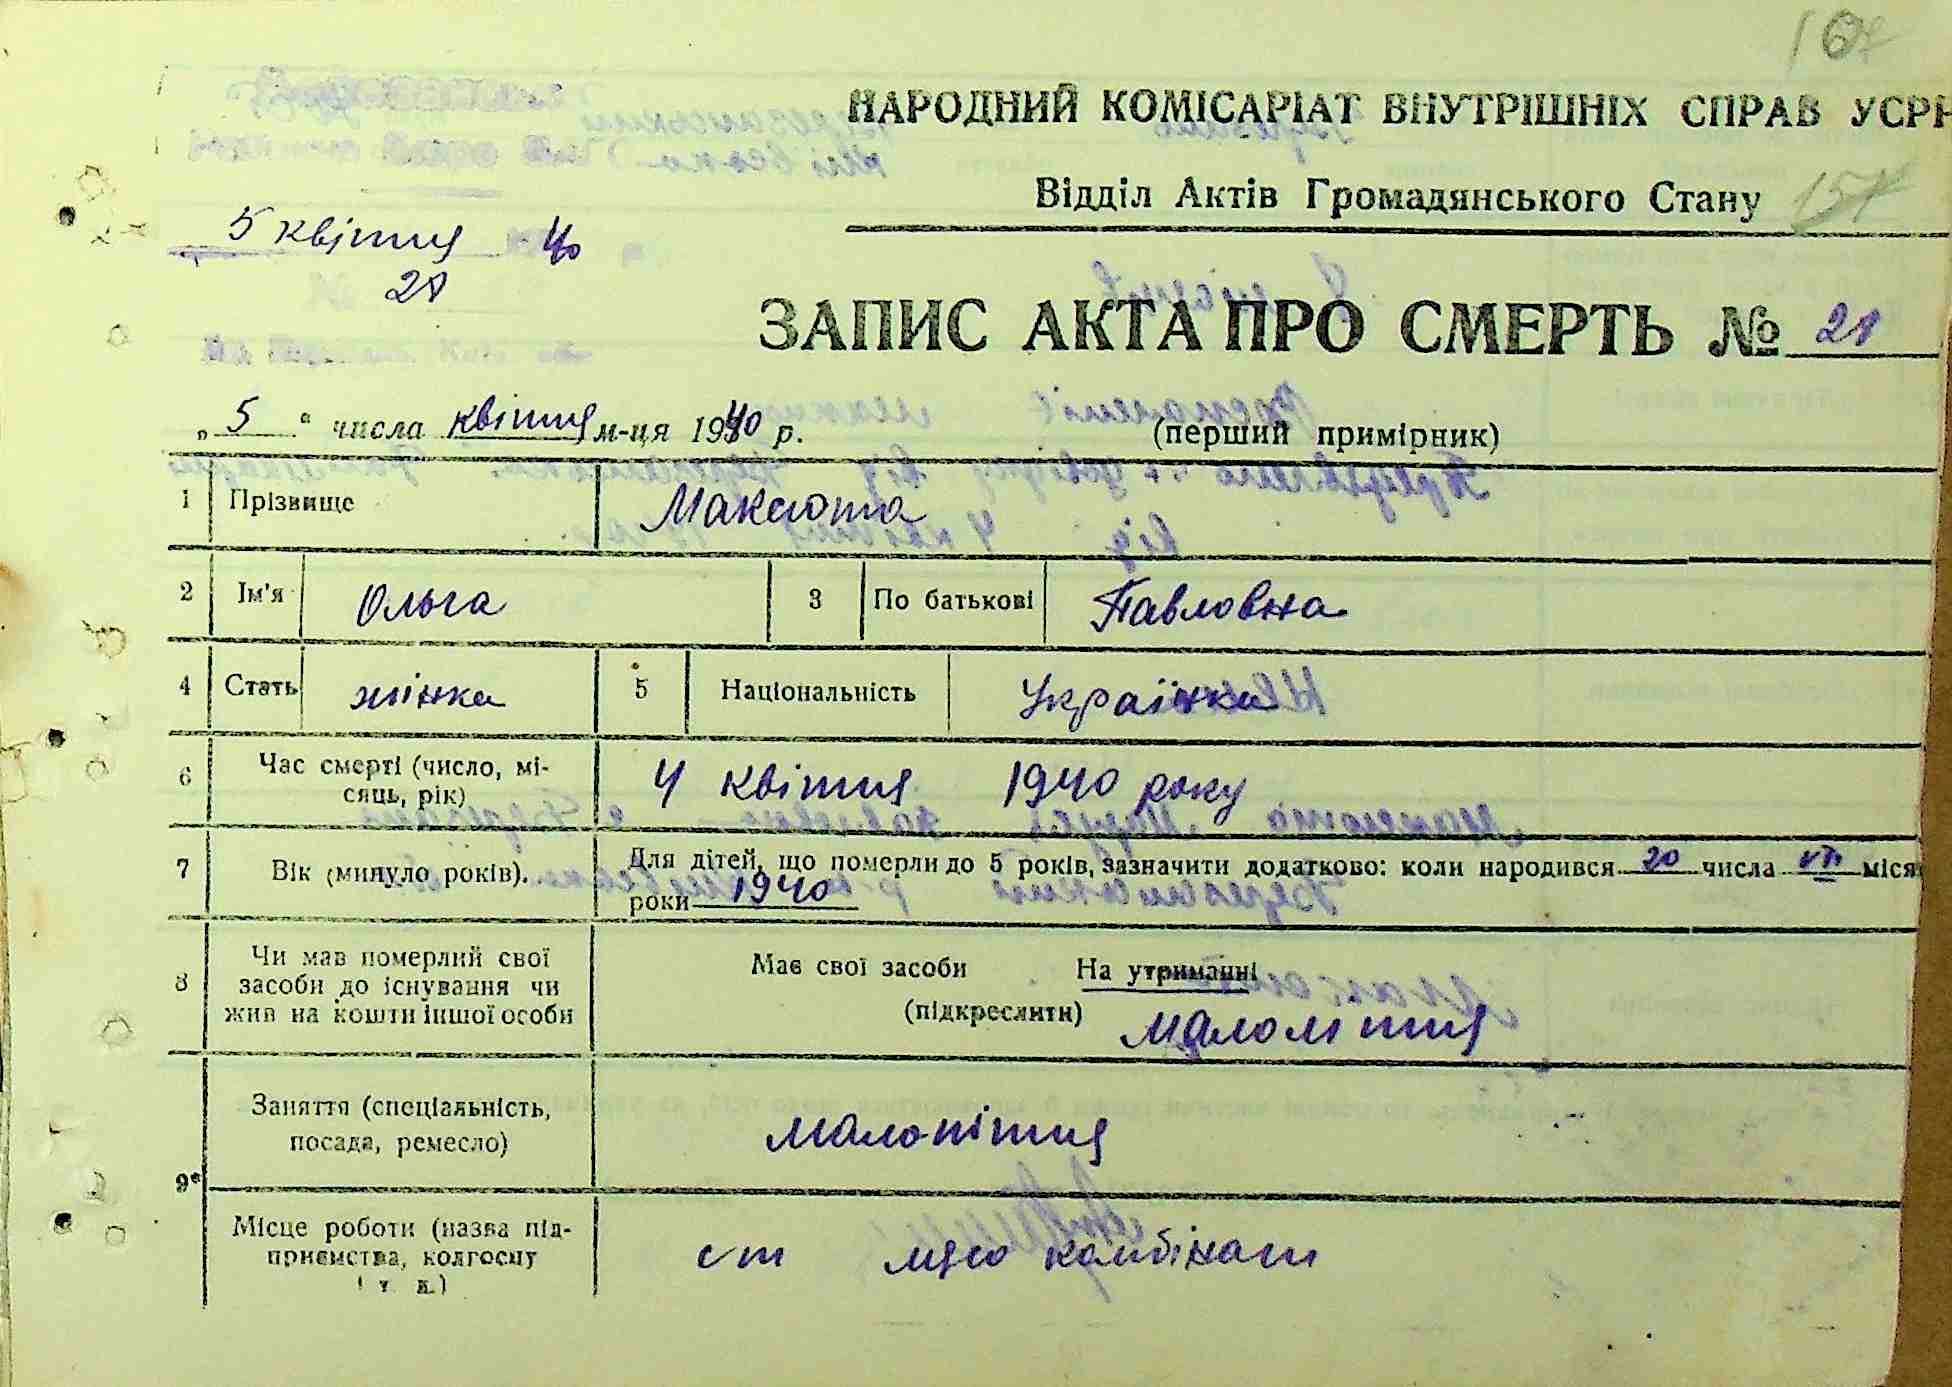 НАРОДНИЙ КОМІСАРІАТ ВНУТРІШНІХ СПРАВ УСРР
Відділ Актів Громадянського Стану 157
5 квітня 40
21
ЗАПИС АКТА ПРО СМЕРТЬ № 21
„ 5 " числа квітня м-ця 1940 р. (перший примірник)
1 Прізвище Максюта
2 Ім'я Ольга 3 По батькові Павловна
4 Стать жінка 5 Національність Українка
6 Час смерті (число, мі-
сяць, рік) 4 квітня 1940 року
7 Вік (минуло років). Для дітей, що померли до 5 років, зазначити додатково: коли народився 20 числа VII міся
роки 1940
8 Чи мав померлий свої
засоби до існування чи
жив на кошти іншої особи
Має свої засоби На утриманні
(підкреслити)
малолітня
9* Заняття (спеціальність,
посада, ремесло) малолітня
Місце роботи (назва під-
приємства, колгоспу
і т. д.) ст мясо комбінат